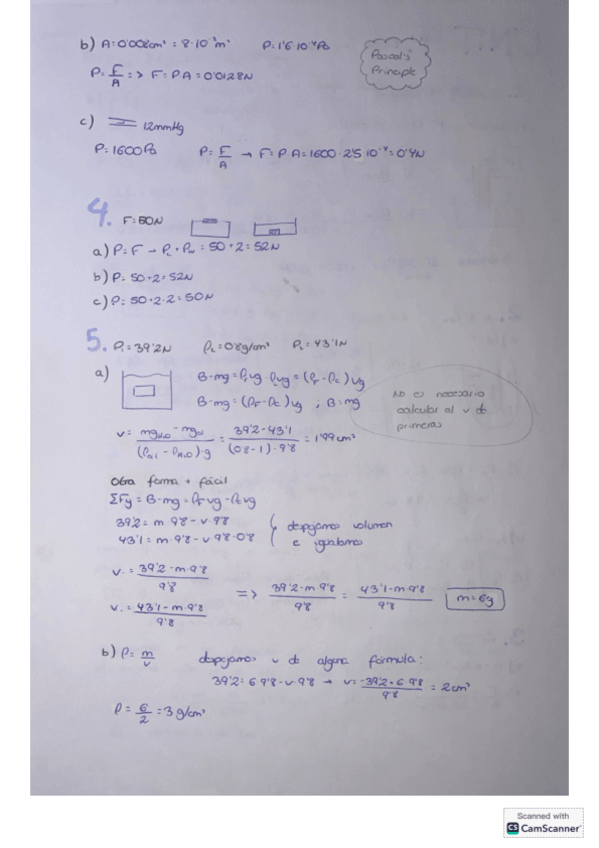 b) A=0'008cm² = 8·10⁻⁷m² P=1'6·10⁴Pa
Pascal's
Principle
P=F/A => F=P·A=0'0128N
c) 12mmHg
P=1600Pa P=F/A → F=P·A=1600·2'5·10⁻⁴=0'4N
4. F=50N
a) P=F → P + P = 50+2=52N
b) P=50+2=52N
c) P=50+2-2=50N
5. P₁=39'2N ρL=0'8g/cm³ P₂=43'1N
a) B-mg=
B-mg= ; B=mg
No es necesario
calcular al v de
primeras
v= = (39'2-43'1)/((0'8-1)·9'8) = 1'99cm³
Otra forma + fácil
ΣFy=B-mg=ρF vg-ρc vg
39'2=m·9'8-v·9'8
43'1=m·9'8-v·9'8·0'8
despejamos volumen
e igualamos
v.=(39'2-m·9'8)/9'8
v.=(43'1-m·9'8)/9'8
=> (39'2-m·9'8)/9'8 = (43'1-m·9'8)/9'8 m=6g
b) ρ=m/v despejamos v de alguna fórmula:
39'2=6·9'8-v·9'8 → v=(-39'2+6·9'8)/9'8=2cm³
ρ=6/2=3g/cm³
Scanned with
CS CamScanner